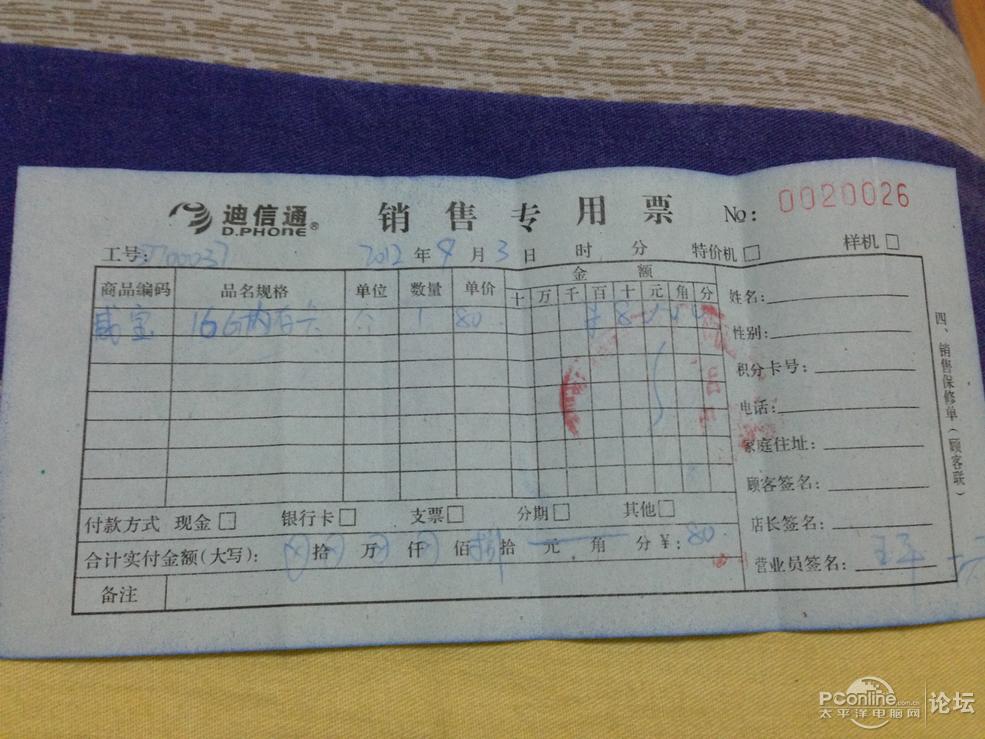 迪信通® 销售专用票 No: 0020026
D.PHONE
工号: 2012 年 9 月 3 日 时 分 特价机 □ 样机 □
商品编码 品名规格 单位 数量 单价 金额 姓名:
十 万 千 百 十 元 角 分
威宝 16G内存卡 个 1 80 ¥ 8
性别:
积分卡号:
电话:
家庭住址:
顾客签名:
付款方式 现金 □ 银行卡 □ 支票 □ 分期 □ 其他 □
店长签名:
合计实付金额(大写): 拾 万 仟 佰 捌 拾 元 角 分 ¥: 80
营业员签名:
备注
四、销售保修单(顾客联)
PConline.com.cn 论坛
太平洋电脑网